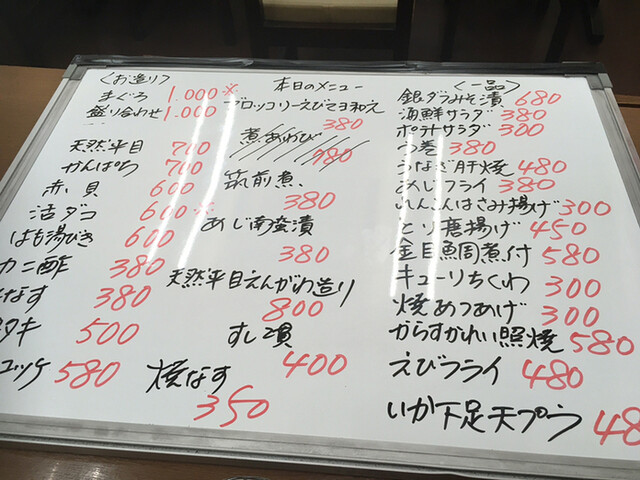 〈お造り〉
まぐろ 1.000※
盛り合わせ 1.000
天然平目 700
かんぱち 700
赤貝 600
活ダコ 600※
はも湯びき 600
カニ酢 380
なす 380
タキ 500
ユッケ 580
本日のメニュー
ブロッコリーえびマヨ和え
380
煮あわび
980
筑前煮
380
あじ南蛮漬
380
天然平目えんがわ造り
800
すじ煮
400
焼なす
350
〈一品〉
銀ダラみそ漬 680
海鮮サラダ 380
ポテトサラダ 300
う巻 380
うなぎ肝焼 480
あじフライ 380
れんこんはさみ揚げ 300
とり唐揚げ 450
金目魚周煮付 580
キューリちくわ 300
焼あつあげ 300
からすかれい照焼 580
えびフライ 480
いか下足天プラ 48